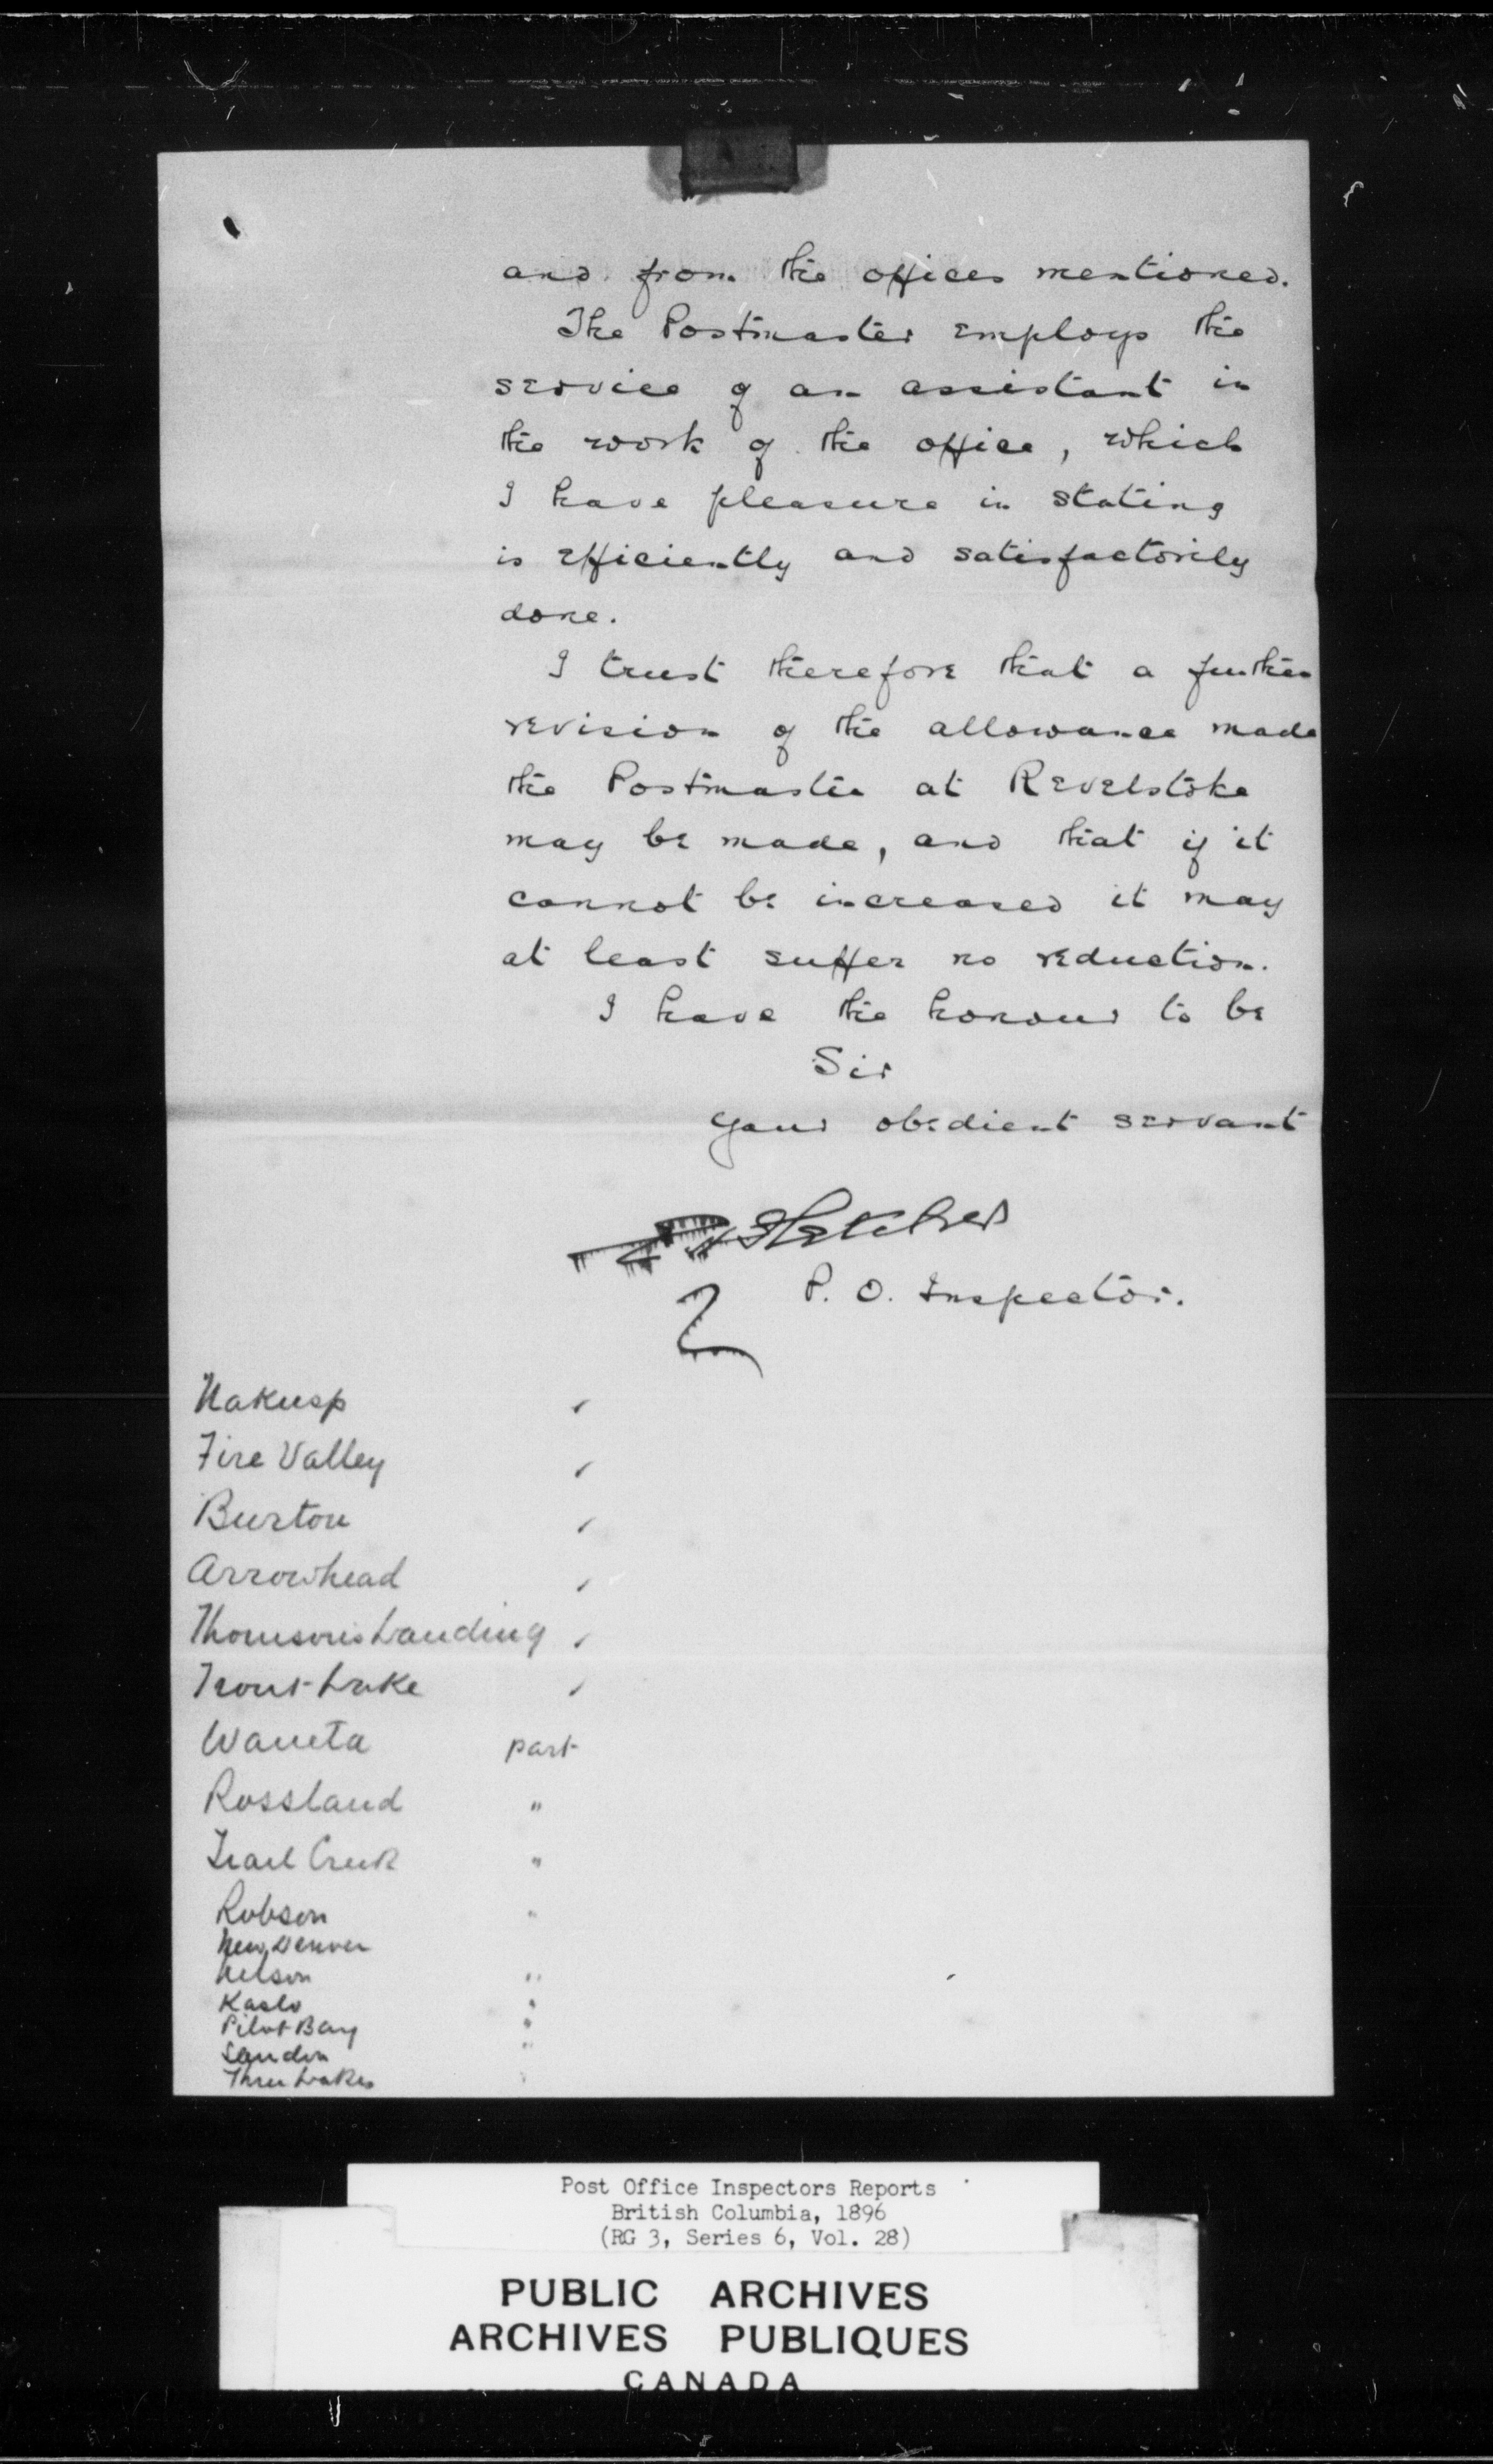 and from the offices mentioned.
The Postmaster employs the
service of an assistant in
the work of the office, which
I have pleasure in stating
is efficiently and satisfactorily
done.
I trust therefore that a further
revision of the allowance made
the Postmaster at Revelstoke
may be made, and that if it
cannot be increased it may
at least suffer no reduction.
I have the honour to be
Sir
Your obedient servant
Fletcher
P. O. Inspector.
Nakusp ✓
Fire Valley ✓
Burton ✓
Arrowhead ✓
Thomsons Landing ✓
Trout Lake ✓
Waneta part
Rossland "
Trail Creek "
Robson "
New Denver
Nelson "
Kaslo "
Pilot Bay "
Sandon "
Three Lakes "
Post Office Inspectors Reports
British Columbia, 1896
(RG 3, Series 6, Vol. 28)
PUBLIC ARCHIVES
ARCHIVES PUBLIQUES
CANADA